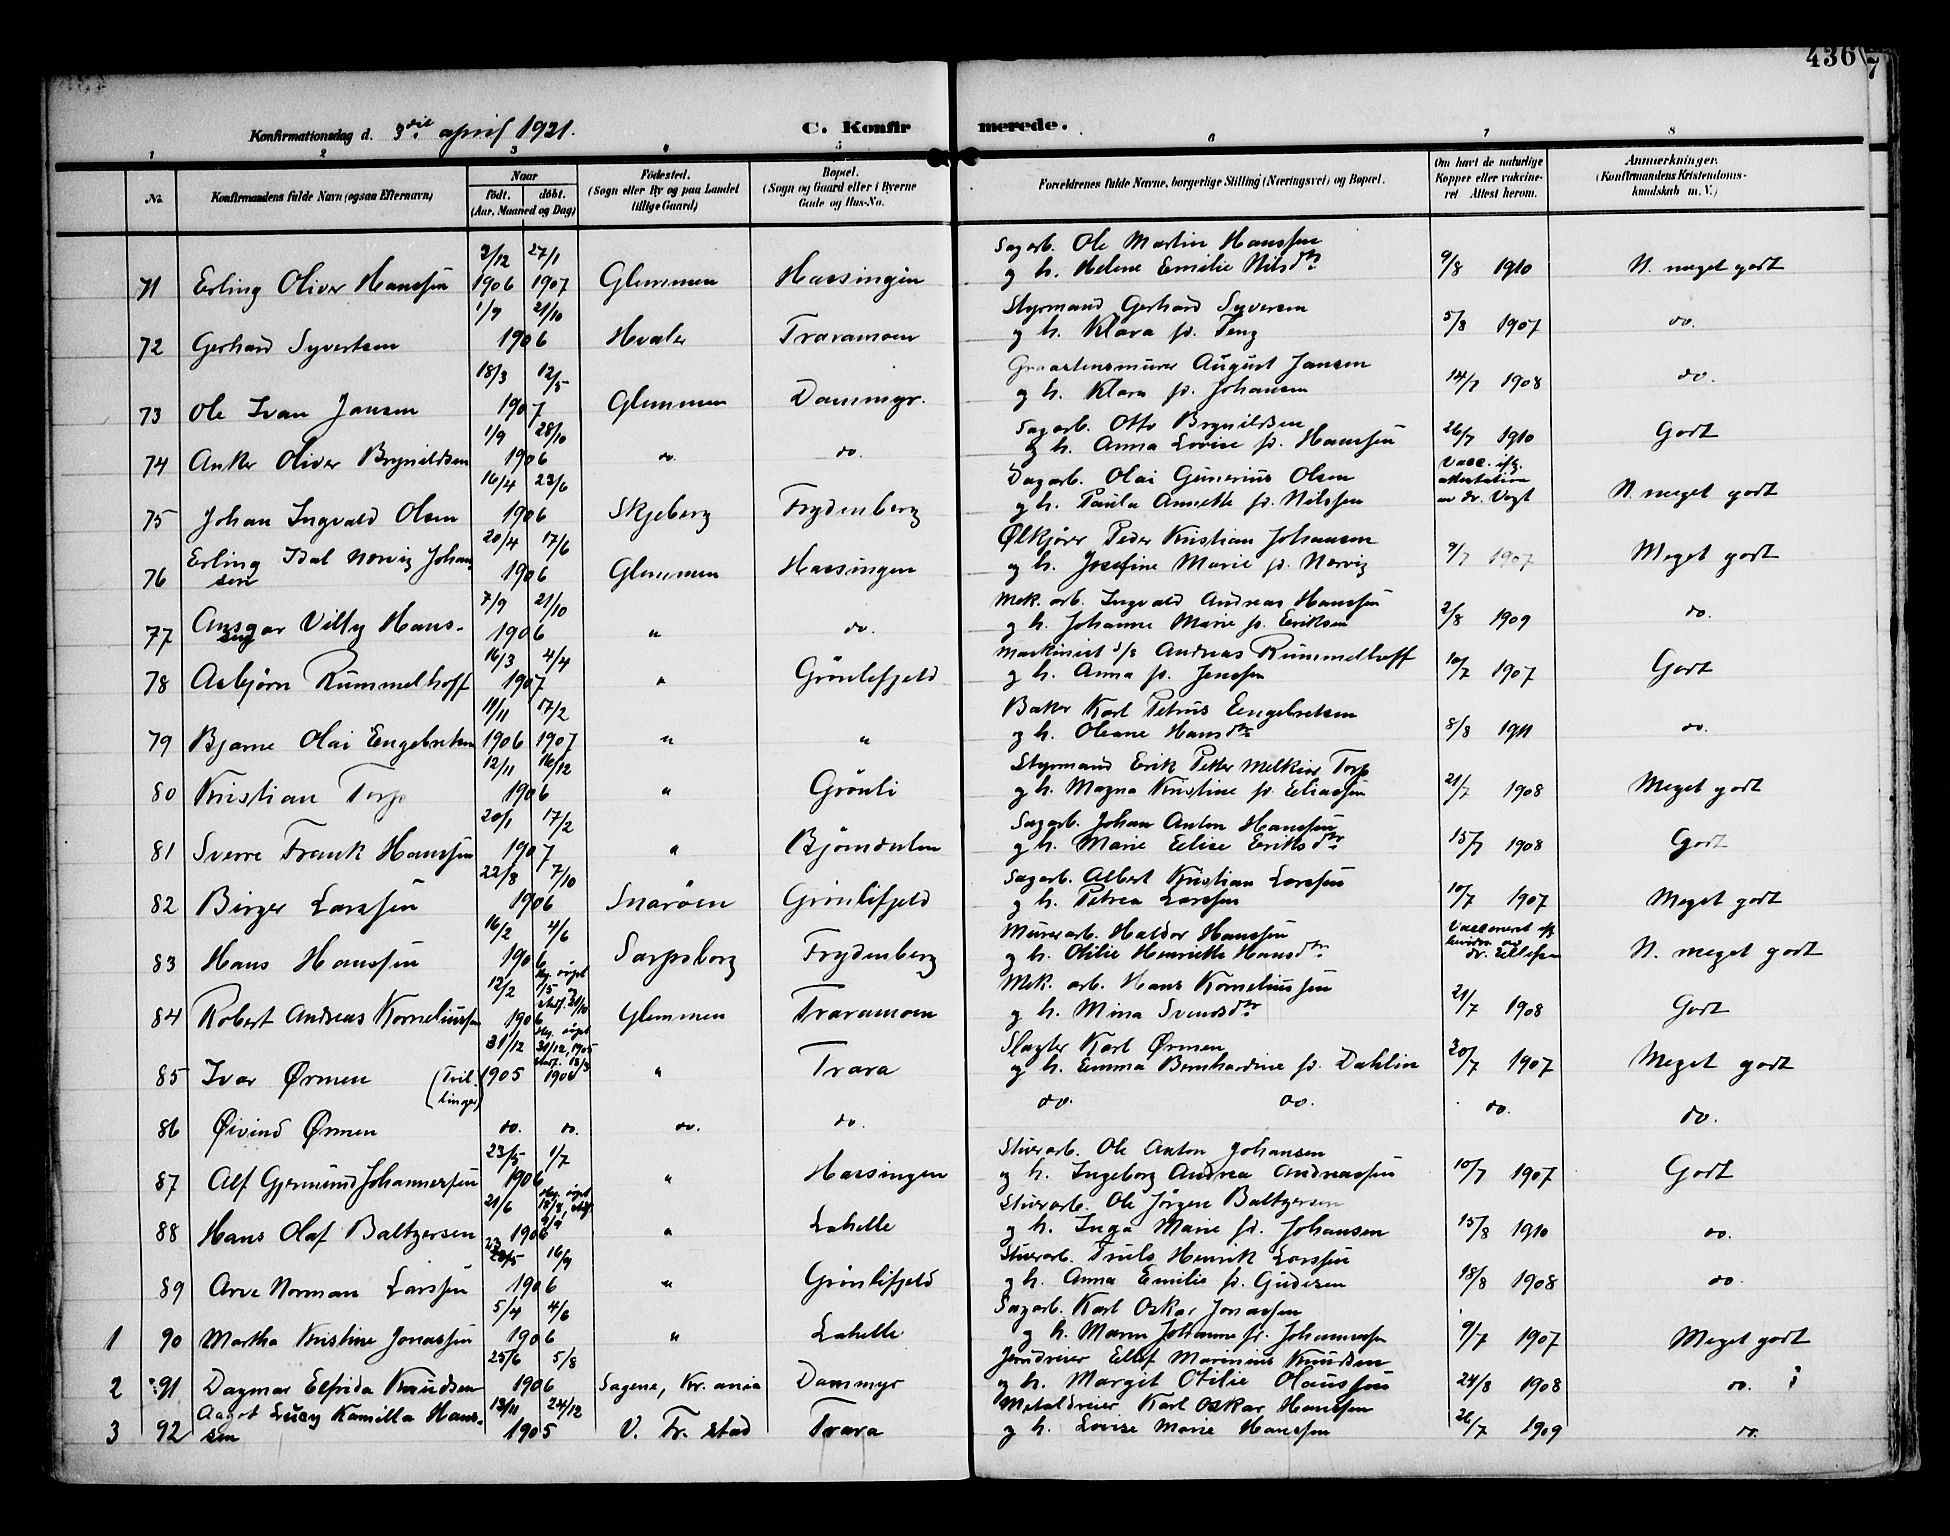 436
7
Konfirmationsdag d. 3die april 1921.
C. Konfir
merede.
1 2 3 4 5 6 7 8
No.
Konfirmandens fulde Navn (ogsaa Efternavn)
Naar
født. døbt.
(Aar, Maaned og Dag)
Fødested.
(Sogn eller By og paa Landet
tillige Gaard)
Bopæl.
(Sogn og Gaard eller i Byerne
Gade og Hus-No.
Forældrenes fulde Navne, borgerlige Stilling (Næringsvei) og Bopæl.
Om havt de naturlige
Kopper eller vakcine-
ret Attest herom.
Anmerkninger.
(Konfirmandens Kristendoms-
kundskab m. V.)
2/12 27/1 Sagarb. Ole Martin Hanssen
71 Erling Oliver Hanssen 1906 1907 Glemmen Hassingen g h. Helene Emilie Nilsdtr 9/8 1910 N. meget godt
1/9 21/10 Styrmand Gerhard Syversen
72 Gerhard Syvertsen 1906 Hvaler Traramoen g h. Klara f. Teng 5/8 1907 do.
18/3 12/5 Graastensmurer August Jansen
73 Ole Ivan Jansen 1907 Glemmen Dammyr. g h. Klara f. Johansen 14/7 1908 do.
1/9 28/10 Sagarb. Otto Brynildsen
74 Anker Oliver Brynildsen 1906 do. do. g h. Anna Lovise f. Hanssen 26/7 1910 Godt
16/4 23/6 Dagarb. Olai Gunerius Olsen Vacc. ifg. attestation
75 Johan Ingvald Olsen 1906 Skjeberg Frydenberg g h. Paula Annette f. Nilssen av dr. Vogt N. meget godt
20/4 17/6 Ølkjører Peder Kristian Johansen
76 Erling Idal Norvig Johan
sen 1906 Glemmen Hassingen g h. Josefine Marie f. Norvig 9/7 1907 Meget godt
7/9 21/10 Mek. arb. Ingvald Andreas Hanssen
77 Ansgar Villy Hans-
sen 1906 " do. g h. Johanne Marie f. Eriksen 2/8 1909 do.
16/3 4/4 Maskinist d/s Andreas Rummelhoff
78 Asbjørn Rummelhoff 1907 " Grönlifjeld g h. Anna f. Jenssen 10/7 1907 Godt
11/11 17/2 Baker Karl Petrus Engebretsen
79 Bjarne Olai Engebretsen 1906 1907 " " g h. Oleane Hansdtr 8/8 1911 do.
12/11 16/12 Styrmand Erik Petter Melkior Torp
80 Kristian Torp 1906 " Grönli g h. Magna Kristine f. Eliassen 21/7 1908 Meget godt
20/1 17/2 Sagarb. Johan Anton Hanssen
81 Sverre Frank Hanssen 1907 " Björndalen g h. Marie Elise Eriksdtr 15/7 1908 Godt
22/8 7/10 Sagarb. Albert Kristian Larssen
82 Birger Larssen 1906 Snaröen Grönlifjeld g h. Petrea Larssen 10/7 1907 Meget godt
16/2 4/6 Murerarb. Haldor Hanssen Vaccineret ifg.
83 Hans Hanssen 1906 Sarpsborg Frydenberg g h. Otilie Henriette Hansdtr dr. Ellefsen N. meget godt
12/2 Hj. døpt 1/5 g stadf. 21/10 Mek. arb. Hans Korneliussen
84 Robert Andreas Korneliussen 1906 Glemmen Traramoen g h. Mina Svendsdtr 21/7 1908 Godt
31/12 Hj. døpt 31/12, 1905 stadf. 18/3 Slagter Karl Ørmen
85 Ivar Ørmen (Tril-
linger) 1905 1906 " Trara g h. Emma Bernhardine f. Dahlin 20/7 1907 Meget godt
86 Øivind Ørmen do. do. do. do. do. do. do. do.
23/5 1/7 Stuerarb. Ole Anton Johansen
87 Alf Gjermund Johannessen 1906 " Hassingen g h. Ingeborg Andrea Andreassen 10/7 1907 Godt
21/6 Hj. døpt 18/8, stadf. 9/9 Stuerarb. Ole Jörgen Baltzersen
88 Hans Olaf Baltzersen 1906 " Lahelle g h. Inga Marie f. Johansen 15/8 1910 do.
23/5 16/9 Stuerarb. Truls Henrik Larssen
89 Arve Norman Larssen 1906 " Grönlifjeld g h. Anna Emilie f. Gudesen 18/8 1908 do.
5/4 4/6 Sagarb. Karl Oskar Jonassen
1 90 Martha Kristine Jonassen 1906 " Lahelle g h. Maren Johanne f. Johannessen 9/7 1907 Meget godt
25/6 5/8 Jerndreier Ellef Marinius Knudsen
2 91 Dagmar Elfrida Knudsen 1906 Sagene, Kr.ania Dammyr g h. Margit Otilie Olaussen 24/8 1908 do.
13/11 24/12 Metaldreier Karl Oskar Hanssen
3 92 Aagot Lucy Kamilla Hans-
sen 1905 V. Fr. stad Trara g h. Lovise Marie Hanssen 26/7 1909 do.